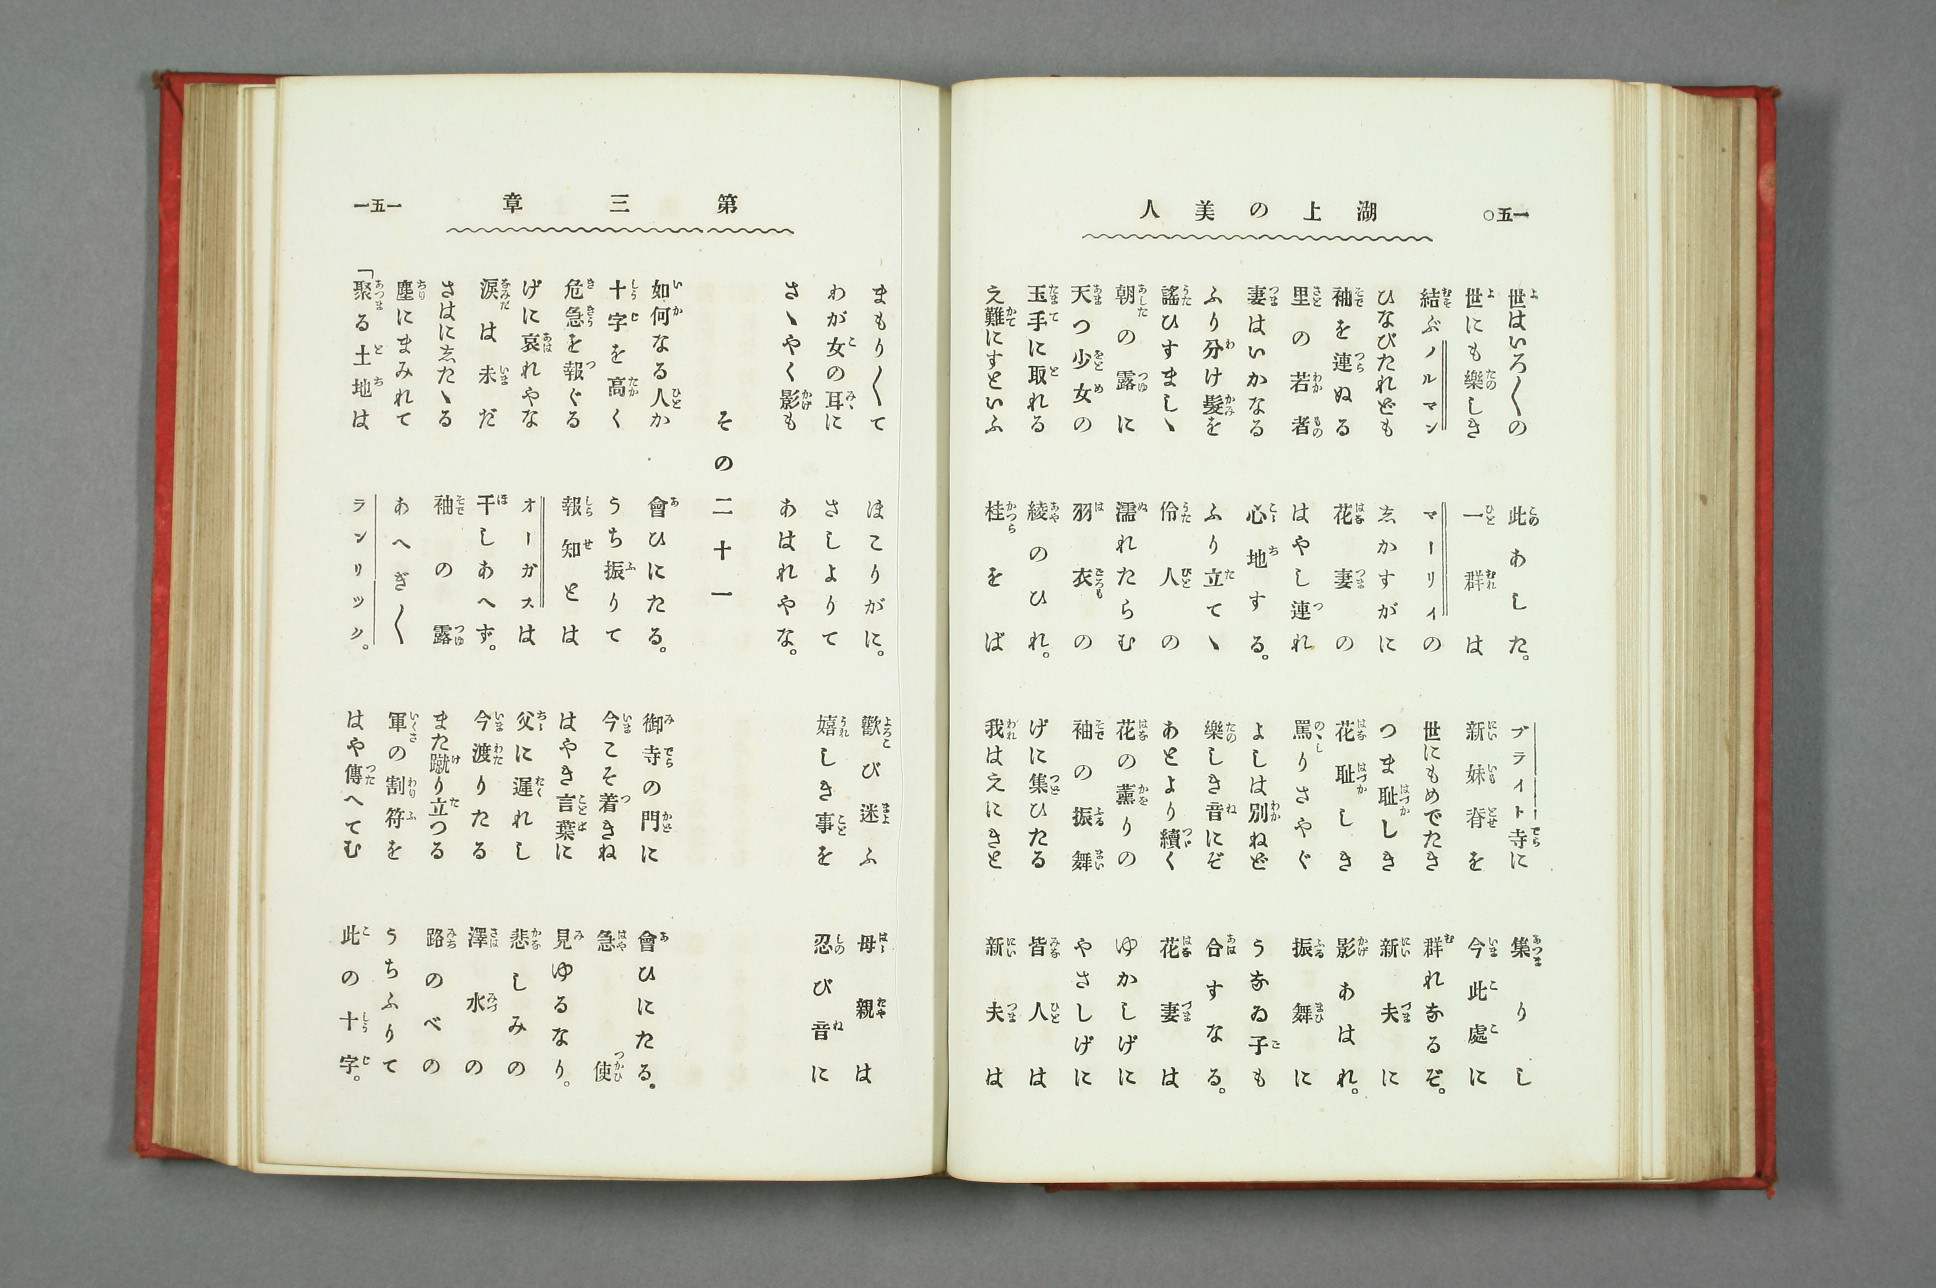 一五〇
湖上の美人
世はいろ〱の 此あした。 ブライト寺に 集りし
世にも樂しき 一群は 新妹脊を 今此處に
結ぶノルマン マーリィの 世にもめでたき 群れなるぞ。
ひなびたれども 志かすがに つま耻しき 新夫に
袖を連ぬる 花妻の 花耻しき 影あはれ。
里の若者 はやし連れ 罵りさやぐ 振舞に
妻はいかなる 心地する。 よしは別ねど うなゐ子も
ふり分け髮を ふり立てゝ 樂しき音にぞ 合すなる。
謠ひすましゝ 伶人の あとより續く 花妻は
朝の露に 濡れたらむ 花の薫りの ゆかしげに
天つ少女の 羽衣の 袖の振舞 やさしげに
玉手に取れる 綾のひれ。 げに集ひたる 皆人は
え難にすといふ 桂をば 我はえにきと 新夫は
一五一
第三章
まもり〱て ほこりがに。 歡び迷ふ 母親は
わが女の耳に さしよりて 嬉しき事を 忍び音に
さゝやく影も あはれやな。
その二十一
如何なる人か 會ひにたる。 御寺の門に 會ひにたる。
十字を高く うち振りて 今こそ着きね 急使
危急を報ぐる 報知とは はやき言葉に 見ゆるなり。
げに哀れやな オーガスは 父に遲れし 悲しみの
涙は未だ 干しあへず。 今渡りたる 澤水の
さはに志たゝる 袖の露 また蹴り立つる 路のべの
塵にまみれて あへぎ〱 軍の割符を うちふりて
「聚る土地は ランリック。 はや傳へてむ 此の十字。